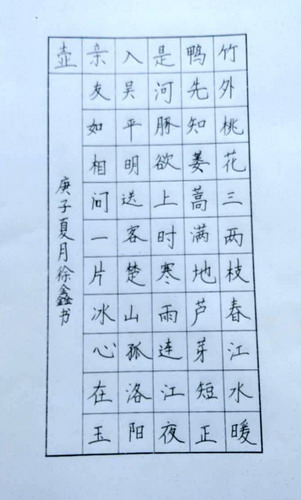 竹外桃花三两枝春江水暖
鸭先知蒌蒿满地芦芽短正
是河豚欲上时寒雨连江夜
入吴平明送客楚山孤洛阳
亲友如相问一片冰心在玉
壶
庚子夏月徐鑫书